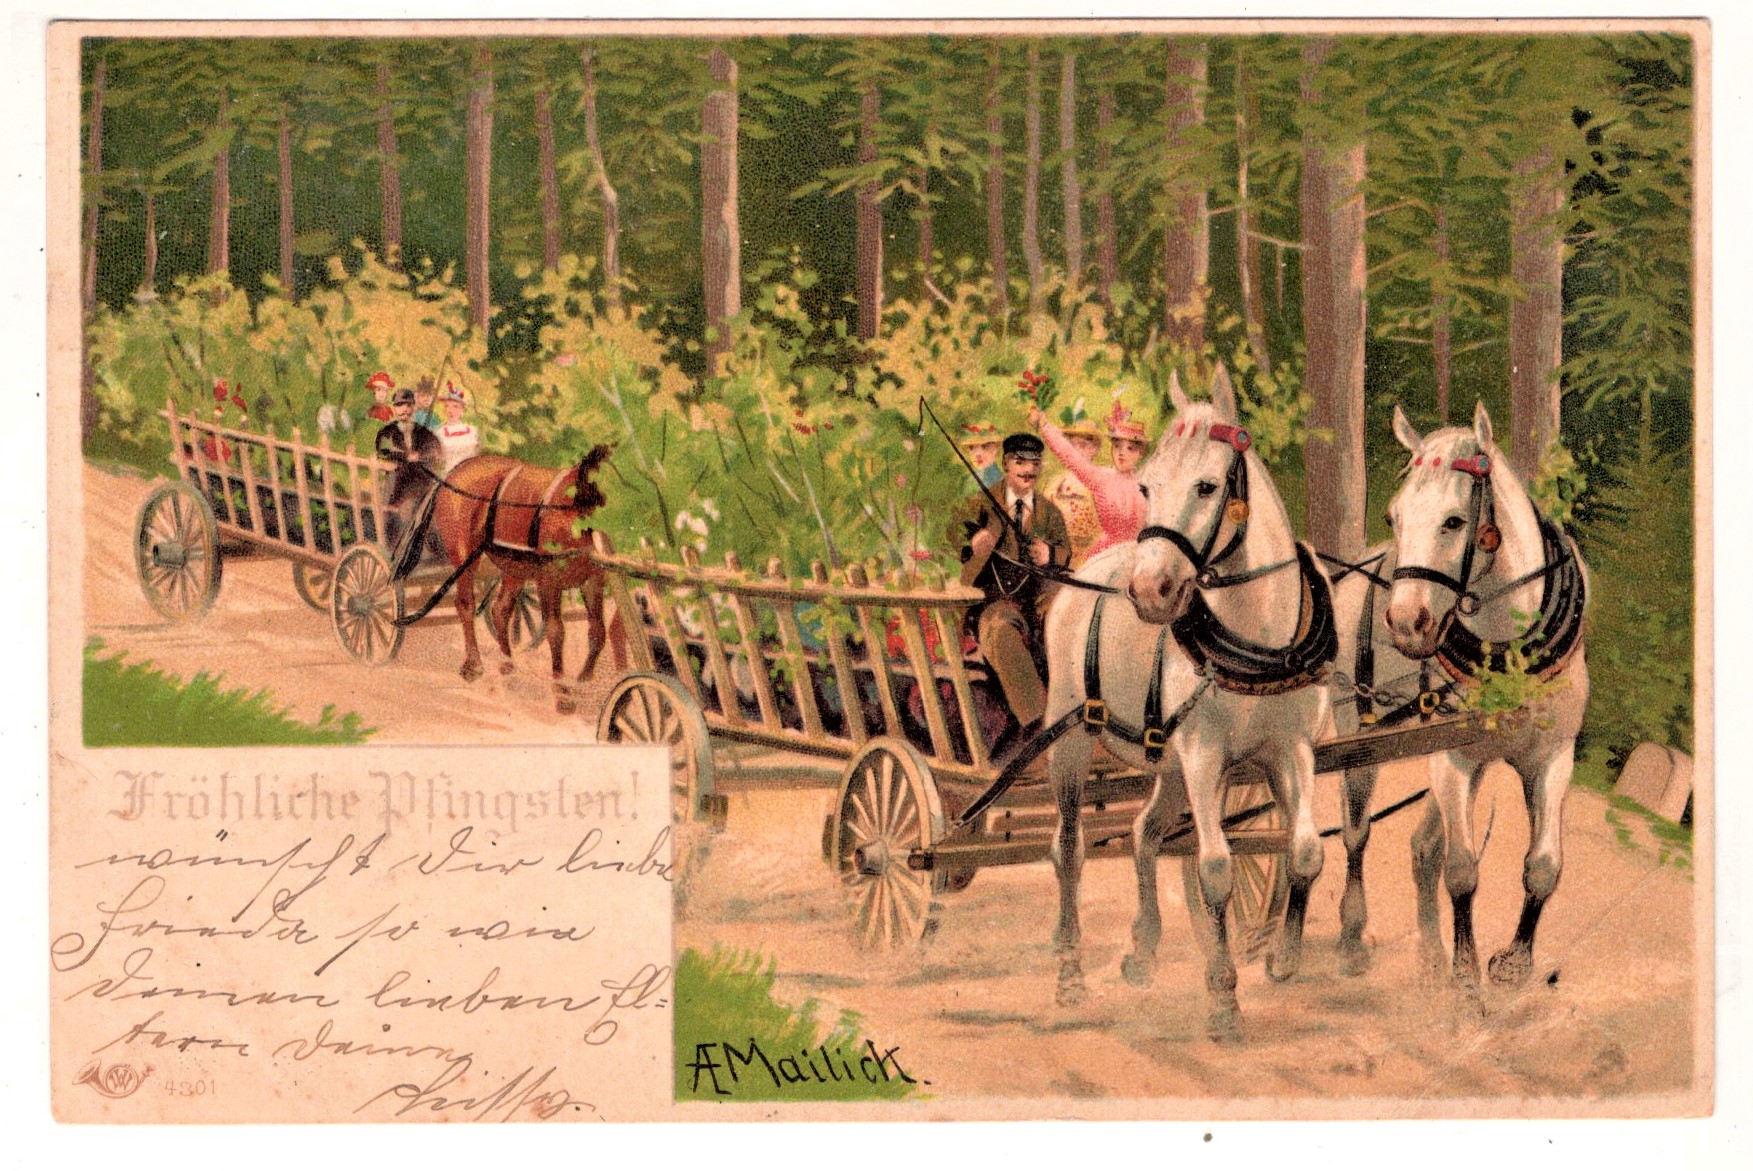 Fröhliche Pfingsten!
wünscht Dir liebe
Frieda so wie
Deinen lieben El-
tern Deine
4301
AEMailick.